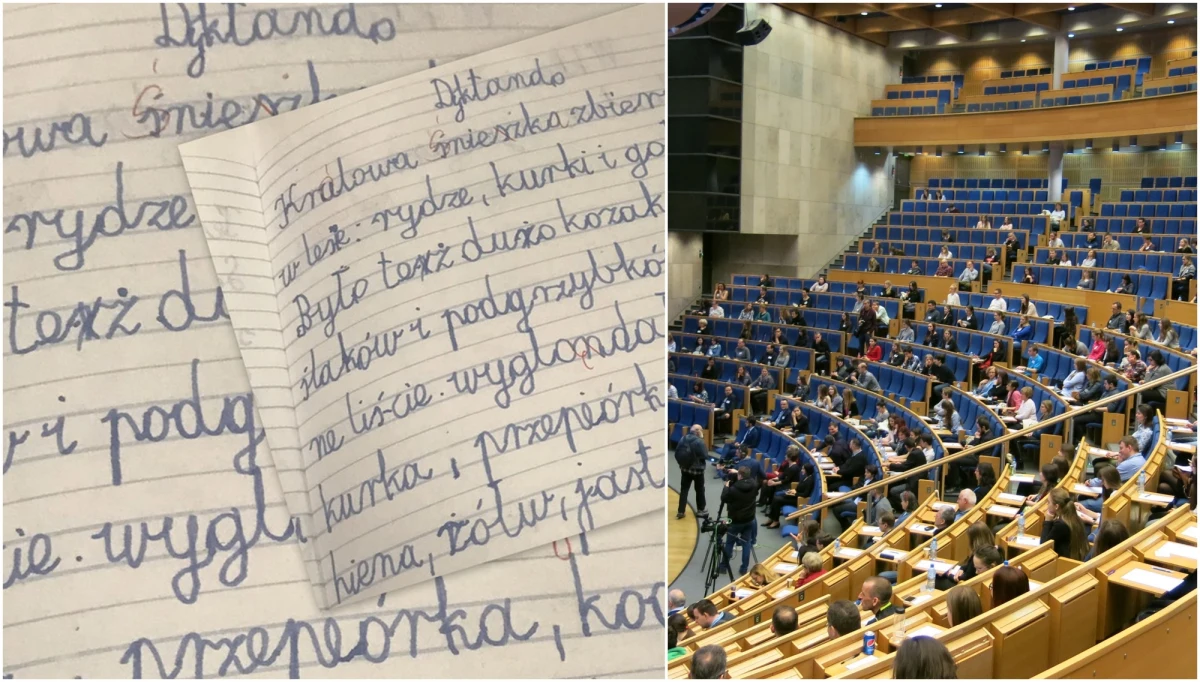 Dyktando
owa Śnieszk
rydze
też du
w i podg
ie. wygl
przepiórka, ko
Dyktando
Królowa Śnieszka zbier
w lesie: rydze, kurki i go
Było też dużo kozak
ślaków i podgrzybkó
ne liście. wyglonda
kurka, przepiórk
hiena, żółw, jast